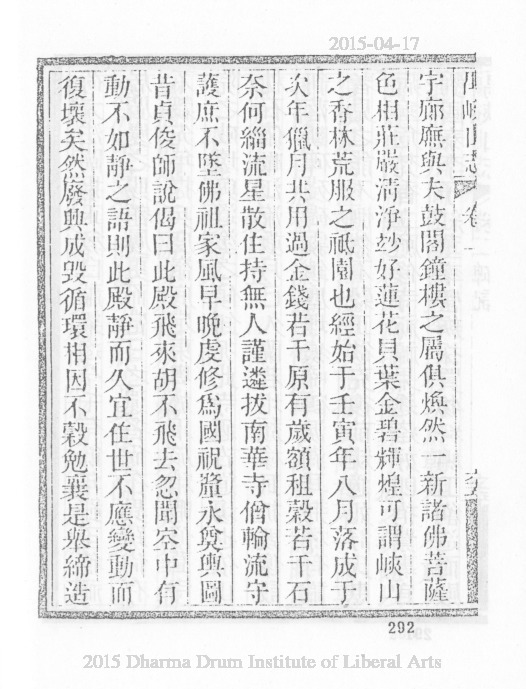 2015-04-17
宇廊廡與夫鼓閣鐘樓之屬俱煥然一新諸佛菩薩
色相莊嚴清淨玅好蓮花貝葉金碧輝煌可謂峽山
之香林荒服之祇園也經始于壬寅年八月落成于
次年臘月共用過金錢若干原有歲額租穀若干石
奈何緇流星散住持無人謹遴拔南華寺僧輪流守
護庶不墜佛祖家風早晚虔修爲國祝釐永奠輿圖
昔貞俊師說偈曰此殿飛來胡不飛去忽聞空中有
動不如靜之語則此殿靜而久宜住世不應變動而
復壞矣然廢興成毀循環相因不穀勉襄是舉締造
292
2015 Dharma Drum Institute of Liberal Arts